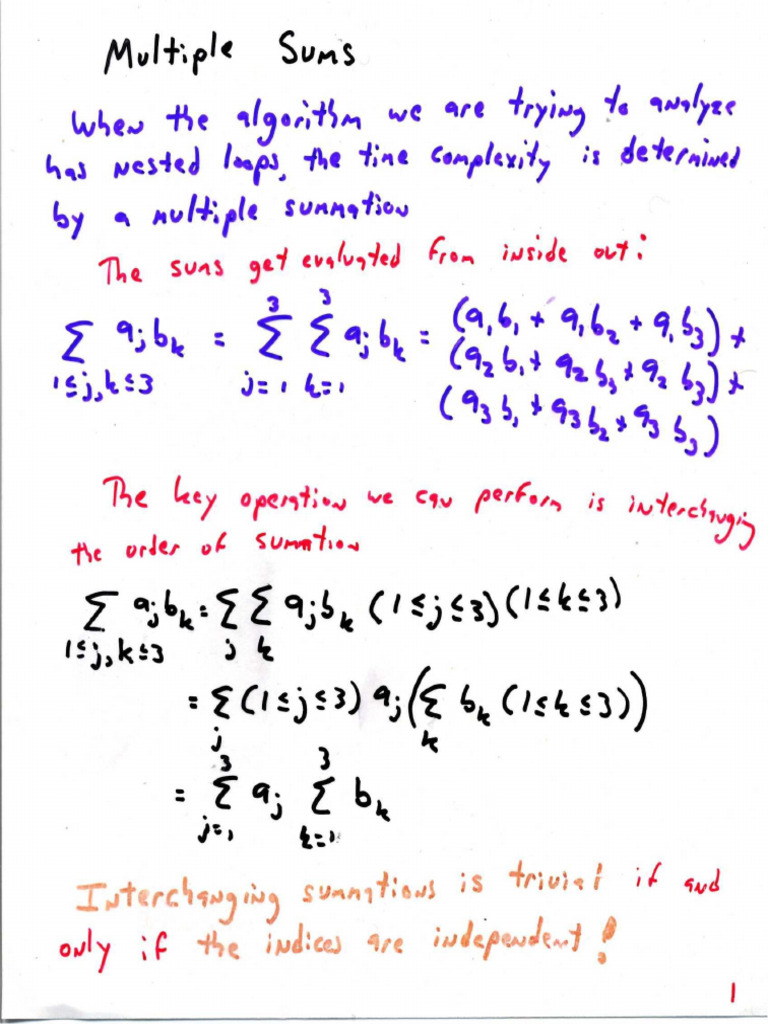 Multiple Sums
When the algorithm we are trying to analyze
has nested loops, the time complexity is determined
by a multiple summation
The sums get evaluated from inside out:
∑_{1≤j,k≤3} a_j b_k = ∑_{j=1}^{3} ∑_{k=1}^{3} a_j b_k = (a_1 b_1 + a_1 b_2 + a_1 b_3) +
(a_2 b_1 + a_2 b_2 + a_2 b_3) +
(a_3 b_1 + a_3 b_2 + a_3 b_3)
The key operation we can perform is interchanging
the order of summation
∑_{1≤j,k≤3} a_j b_k = ∑_j ∑_k a_j b_k (1≤j≤3)(1≤k≤3)
= ∑_j (1≤j≤3) a_j (∑_k b_k (1≤k≤3))
= ∑_{j=1}^{3} a_j ∑_{k=1}^{3} b_k
Interchanging summations is trivial if and
only if the indices are independent!
1